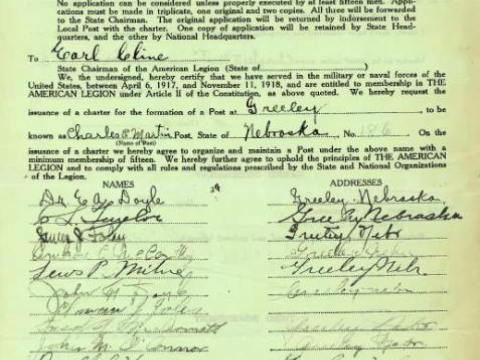 No application can be considered unless properly executed by at least fifteen men. Appli-
cations must be made in triplicate, one original, and two copies. All three will be forwarded
to the State Chairman. The original application will be returned by indorsement to the
Local Post with the charter. One copy of application will be retained by State Head-
quarters, and the other by National Headquarters.
To Earl Cline
State Chairman of the American Legion (State of )
We, the undersigned, hereby certify that we have served in the military or naval forces of the
United States, between April 6, 1917, and November 11, 1918, and are entitled to membership in THE
AMERICAN LEGION under Article II of the Constitution, as above quoted. We hereby request the
issuance of a charter for the formation of a Post at Greeley, to be
known as Charles P. Martin Post, State of Nebraska, No. 186 On the
(Name of Post)
issuance of a charter we hereby agree to organize and maintain a Post under the above name with a
minimum membership of fifteen. We hereby further agree to uphold the principles of THE AMERICAN
LEGION and to comply with all rules and regulations prescribed by the State and National Organizations
of the Legion.
NAMES ADDRESSES
Dr. E. Y. Doyle Greeley. Nebraska,
Greeley Nebraska
Foley Greeley Nebr
Greeley
Lews P. Greeley Neb.
John Greeley
John M. O'Connor